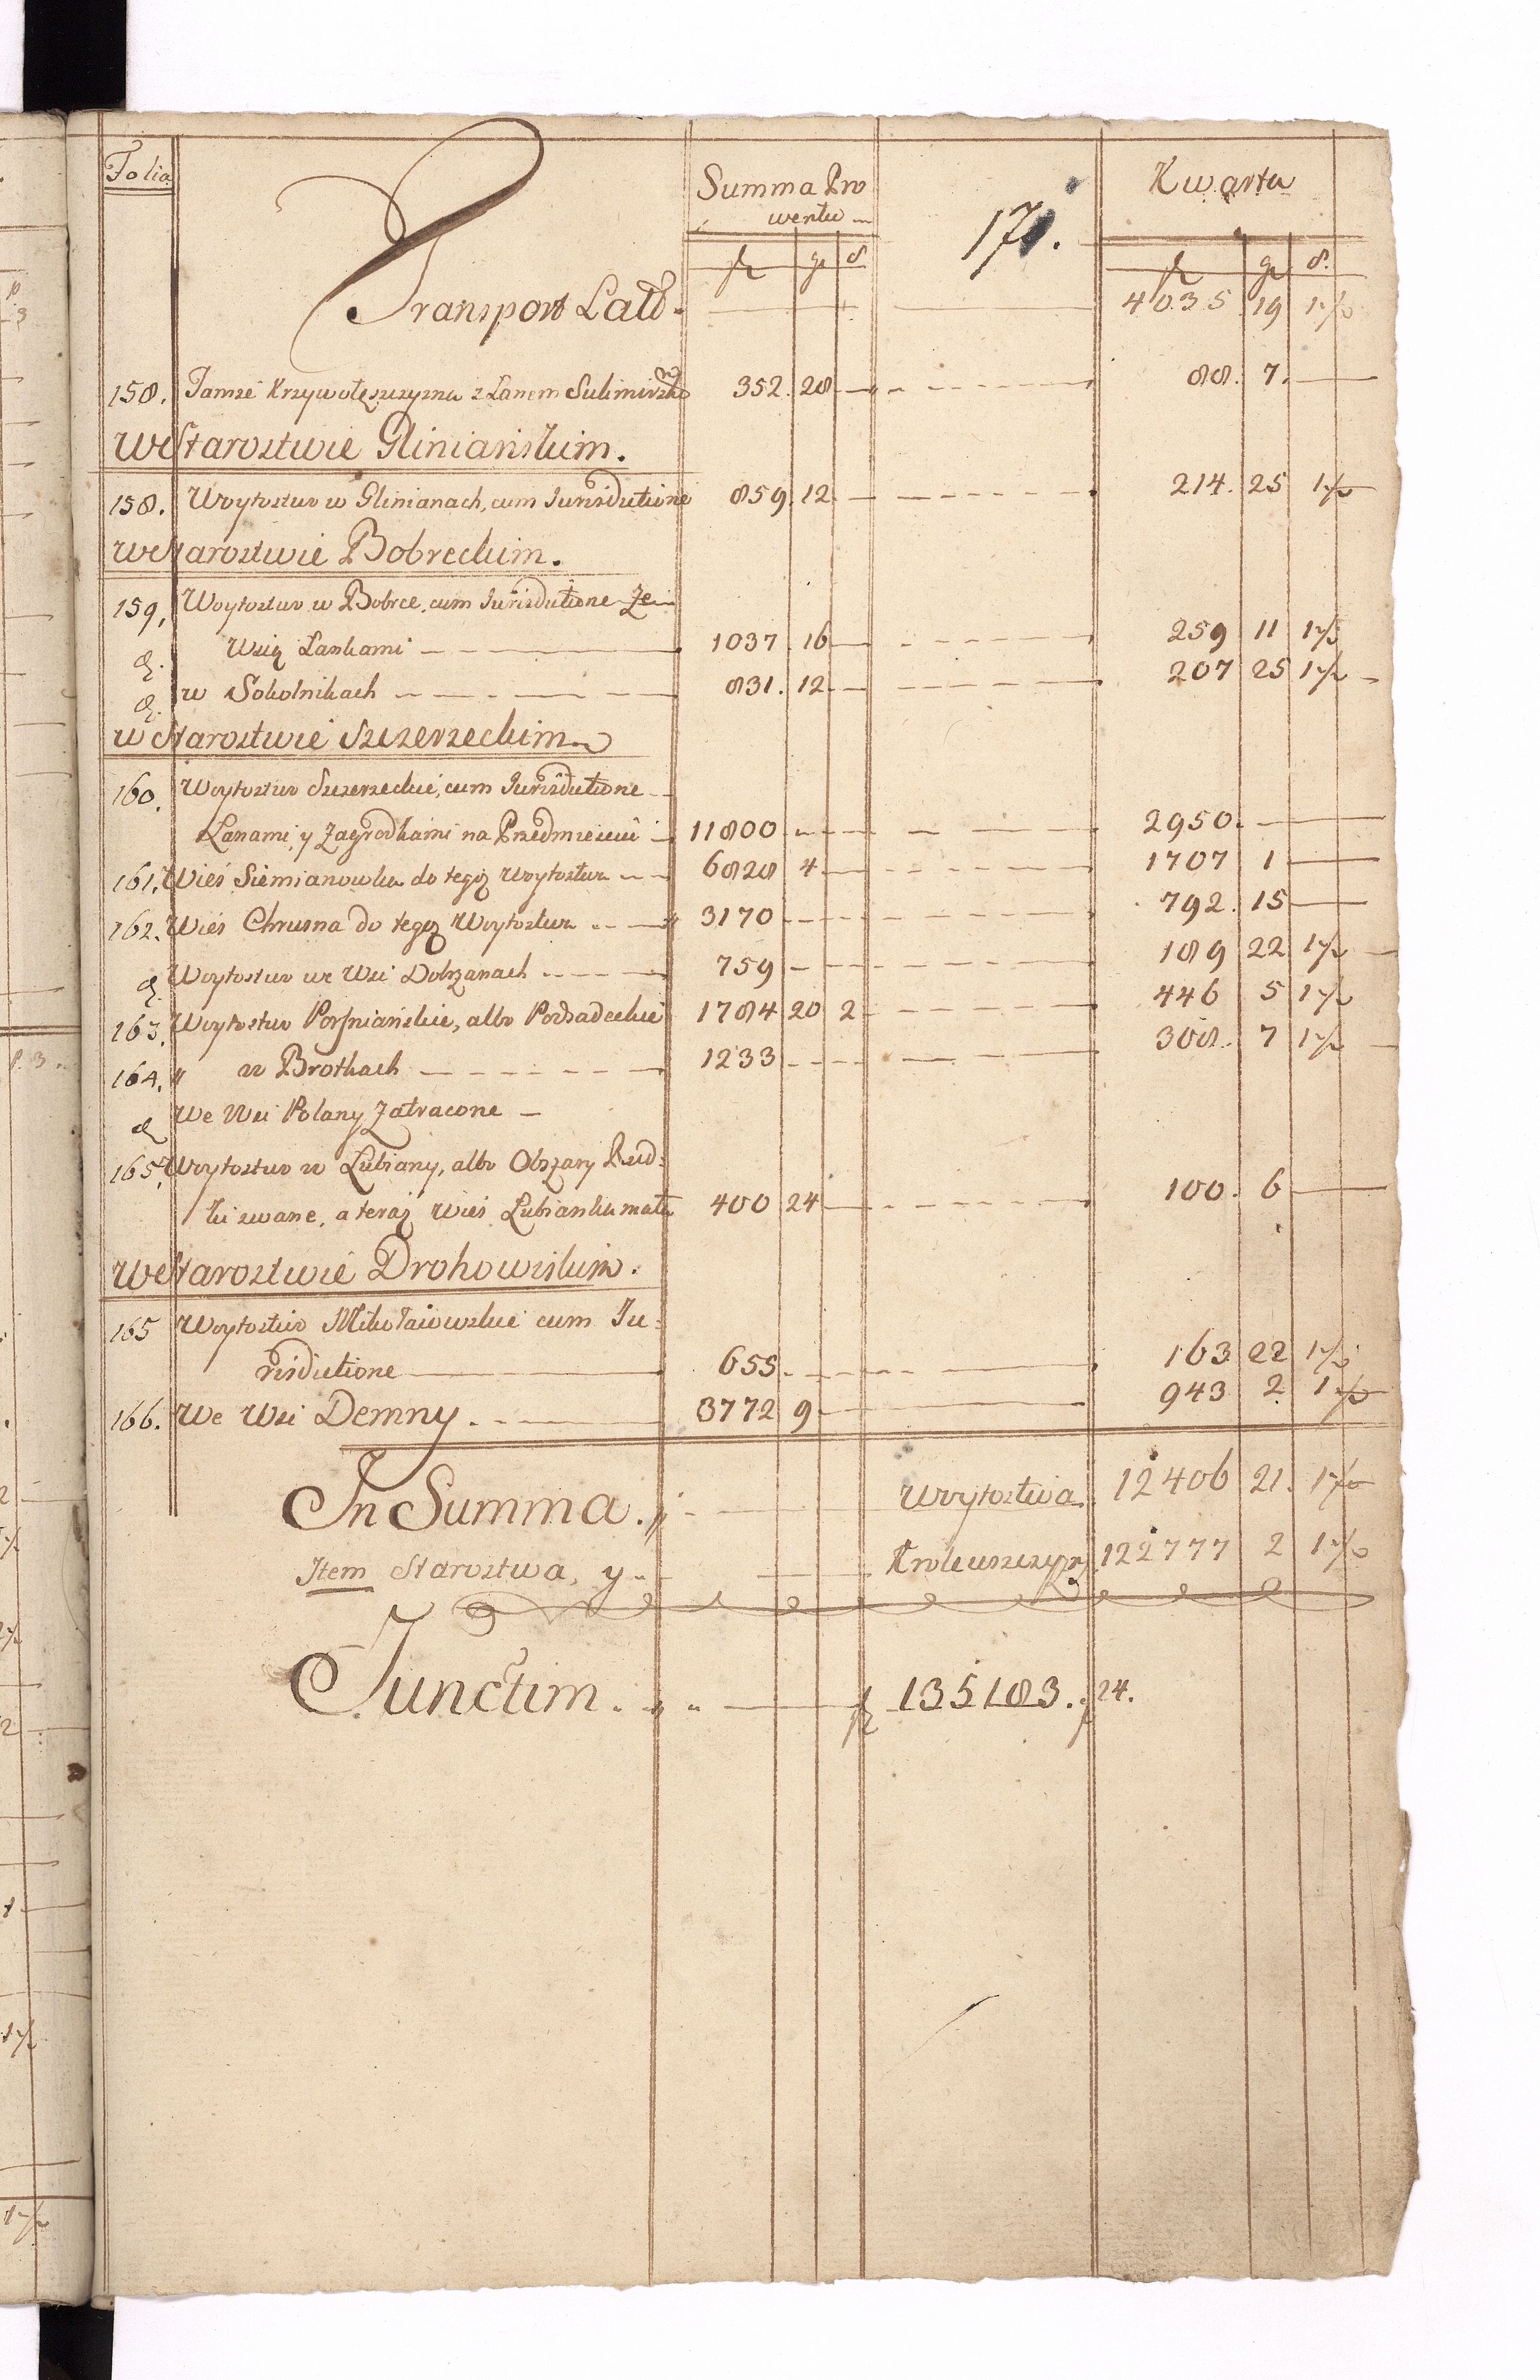 Folia
Summa Pro
wentu
171.
Kwarta
fl gr d
fl gr d.
Transport Lat. 4035 19 1 1/2
158. Tamże Krzywołęszczyzna z Łanem Sulimirsko 352. 28 88. 7.
w Starostwie Glinianskim.
158. Woytostwo w Glinianach, cum Jurisdictione 859. 12 214. 25 1 1/2
w Starostwie Bobreckim.
159. Woytostwo w Bobrce, cum Jurisdictione Ze
Wsią Lankami 1037. 16 259 11 1 1/2
w Sokolnikach 831. 12 207 25 1 1/2
w Starostwie Szczerzeckim
160. Woytostwo Szczerzeckie, cum Jurisdictione
Łanami, y Zagrodkami na Przedmieściu 11800 2950.
161. Wieś Siemianowka do tegoż Woytostwa 6828 4 1707 1
162. Wieś Chrusna do tegoż Woytostwa 3170 792. 15
Woytostwo we Wsi Dobrzanach 759 189 22 1 1/2
163. Woytostwo Porszniańskie, albo Podsadeckie 1784 20 2 446 5 1 1/2
164. " w Brotkach 1233 308. 7 1 1/2
We Wsi Polany Zatracone
165. Woytostwo w Lubiany, albo Obszary Rud:
ki zwane, a teraz Wieś Lubianka mała 400 24 100. 6
w Starostwie Drohowiskim.
165 Woytostwo Mikołaiowskie cum Ju:
risdictione 655. 163 22 1 1/2
166. We Wsi Demny. 3772 9 943 2 1 1/2
In Summa. Woytostwa. 12406 21. 1 1/2
Item Starostwa, y Krolewszczyzn. 122777 2 1 1/2
Junctim. fl 135183. 24.